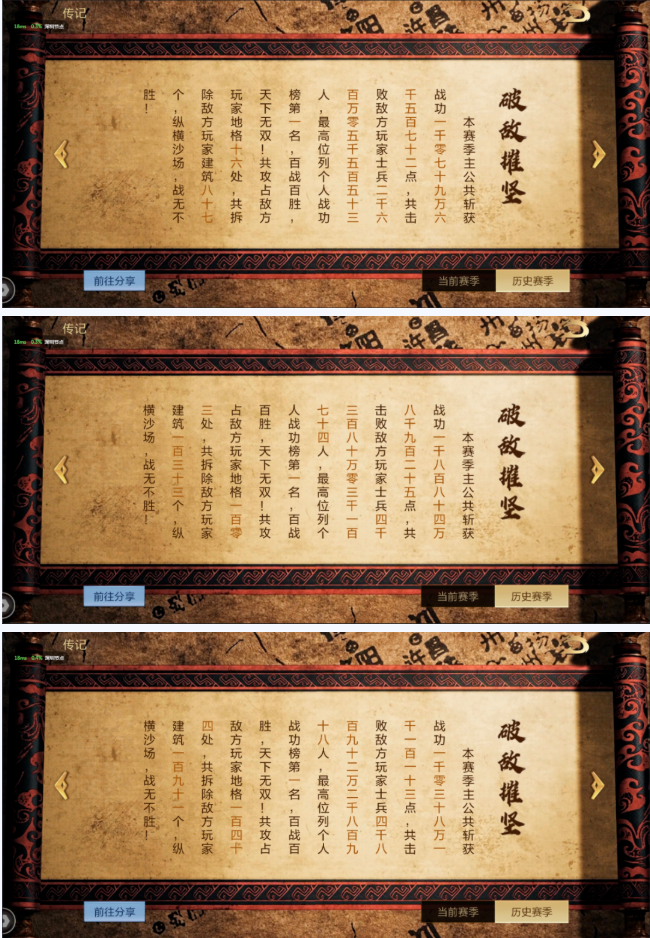 传记
18ms 深圳节点
许昌
破敌摧坚
本赛季主公共斩获
战功一千零七十九万六
千五百七十二点，共击
败敌方玩家士兵二千六
百万零五千五百五十三
人，最高位列个人战功
榜第一名，百战百胜，
天下无双！共攻占敌方
玩家地格十六处，共拆
除敌方玩家建筑八十七
个，纵横沙场，战无不
胜！
前往分享
当前赛季
历史赛季
传记
18ms 深圳节点
许昌
破敌摧坚
本赛季主公共斩获
战功一千八百八十四万
八千九百二十五点，共
击败敌方玩家士兵四千
三百八十万零三千一百
七十四人，最高位列个
人战功榜第一名，百战
百胜，天下无双！共攻
占敌方玩家地格一百零
三处，共拆除敌方玩家
建筑一百三十三个，纵
横沙场，战无不胜！
前往分享
当前赛季
历史赛季
传记
18ms 深圳节点
许昌
破敌摧坚
本赛季主公共斩获
战功一千零三十八万一
千一百一十三点，共击
败敌方玩家士兵四千八
百九十二万二千八百九
十八人，最高位列个人
战功榜第一名，百战百
胜，天下无双！共攻占
敌方玩家地格一百四十
四处，共拆除敌方玩家
建筑一百九十一个，纵
横沙场，战无不胜！
前往分享
当前赛季
历史赛季